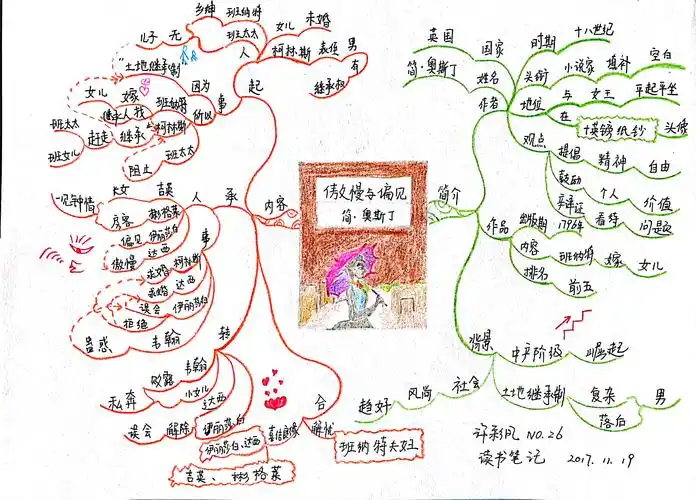 傲慢与偏见
简·奥斯丁
简介
作者
国家
英国
姓名
简·奥斯丁
时期
十八世纪
头衔
小说家
填补
空白
地位
与
女王
平起平坐
在
十英镑纸钞
头像
观点
提倡
精神
自由
鼓励
个人
价值
辩证
看待
问题
作品
出版期
1796年
内容
班纳特
嫁
女儿
排名
前五
背景
中产阶级
崛起
社会
风尚
趋好
土地继承制
复杂
落后
男
内容
起
人
乡绅
班纳特
班太太
无
儿子
女儿
未婚
柯林斯
表侄
男
有
继承权
事
因为
"土地继承制
所以
班纳特
嫁
女儿
柯林斯
找
继承人
继承
赶走
班太太
班女儿
班太太
阻止
承
人
吉英
大女
一见钟情
彬格莱
房客
事
伊丽莎白
偏见
达西
傲慢
柯林斯
求婚
达西
求婚
伊丽莎白
误会
拒绝
韦翰
蛊惑
转
韦翰
败露
小女儿
私奔
达西
伊丽莎白
解除
误会
合
解忧
班纳特夫妇
喜结良缘
伊丽莎白、达西
吉英、彬格莱
许彩凤 NO.26
读书笔记 2017.11.19